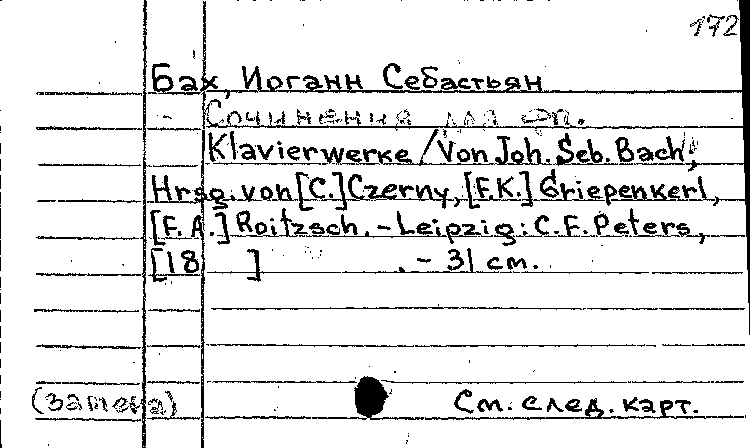 172
Бах, Иоганн Себастьян
- Сочинения для фп.
Klavierwerke / Von Joh. Seb. Bach;
Hrsg. von [C.] Czerny, [F.K.] Griepenkerl,
[F. A.] Roitzsch. - Leipzig: C. F. Peters,
[18 ] . - 31 cm.
(замена) См. след. карт.